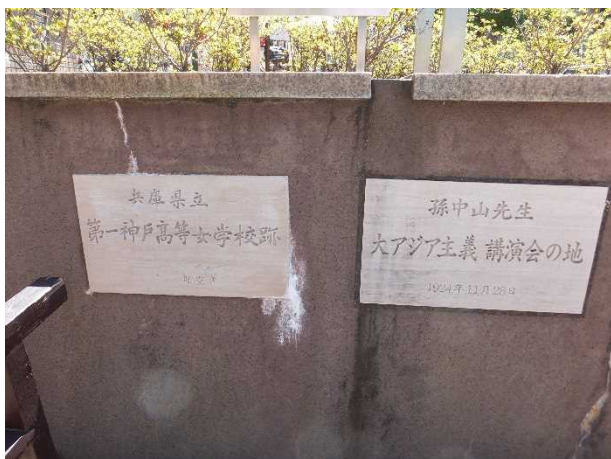 兵庫県立
第一神戸高等女学校跡
孫中山先生
大アジア主義 講演会の地
1924年11月28日